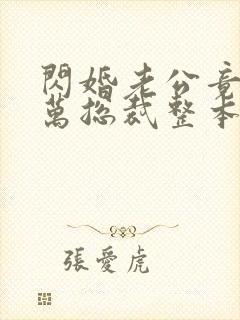 閃婚老公竟
萬總裁整本
張愛虎